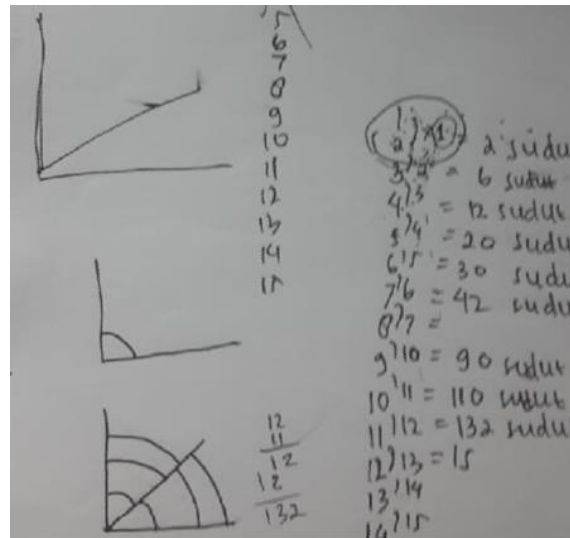 5
6
7
8
9
10
11
12
13
14
15
12
11
12
12
132
1
2 ) × 1 = 2 sudu
3 ) 2 = 6 sudut
4 ) 3 = 12 sudut
5 ) 4 = 20 sudut
6 ) 5 = 30 sudu
7 ) 6 = 42 sudu
8 ) 7 =
9 ) 10 = 90 sudut
10 ) 11 = 110 sudut
11 ) 12 = 132 sudu
12 ) 13 = 15
13 ) 14
14 ) 15